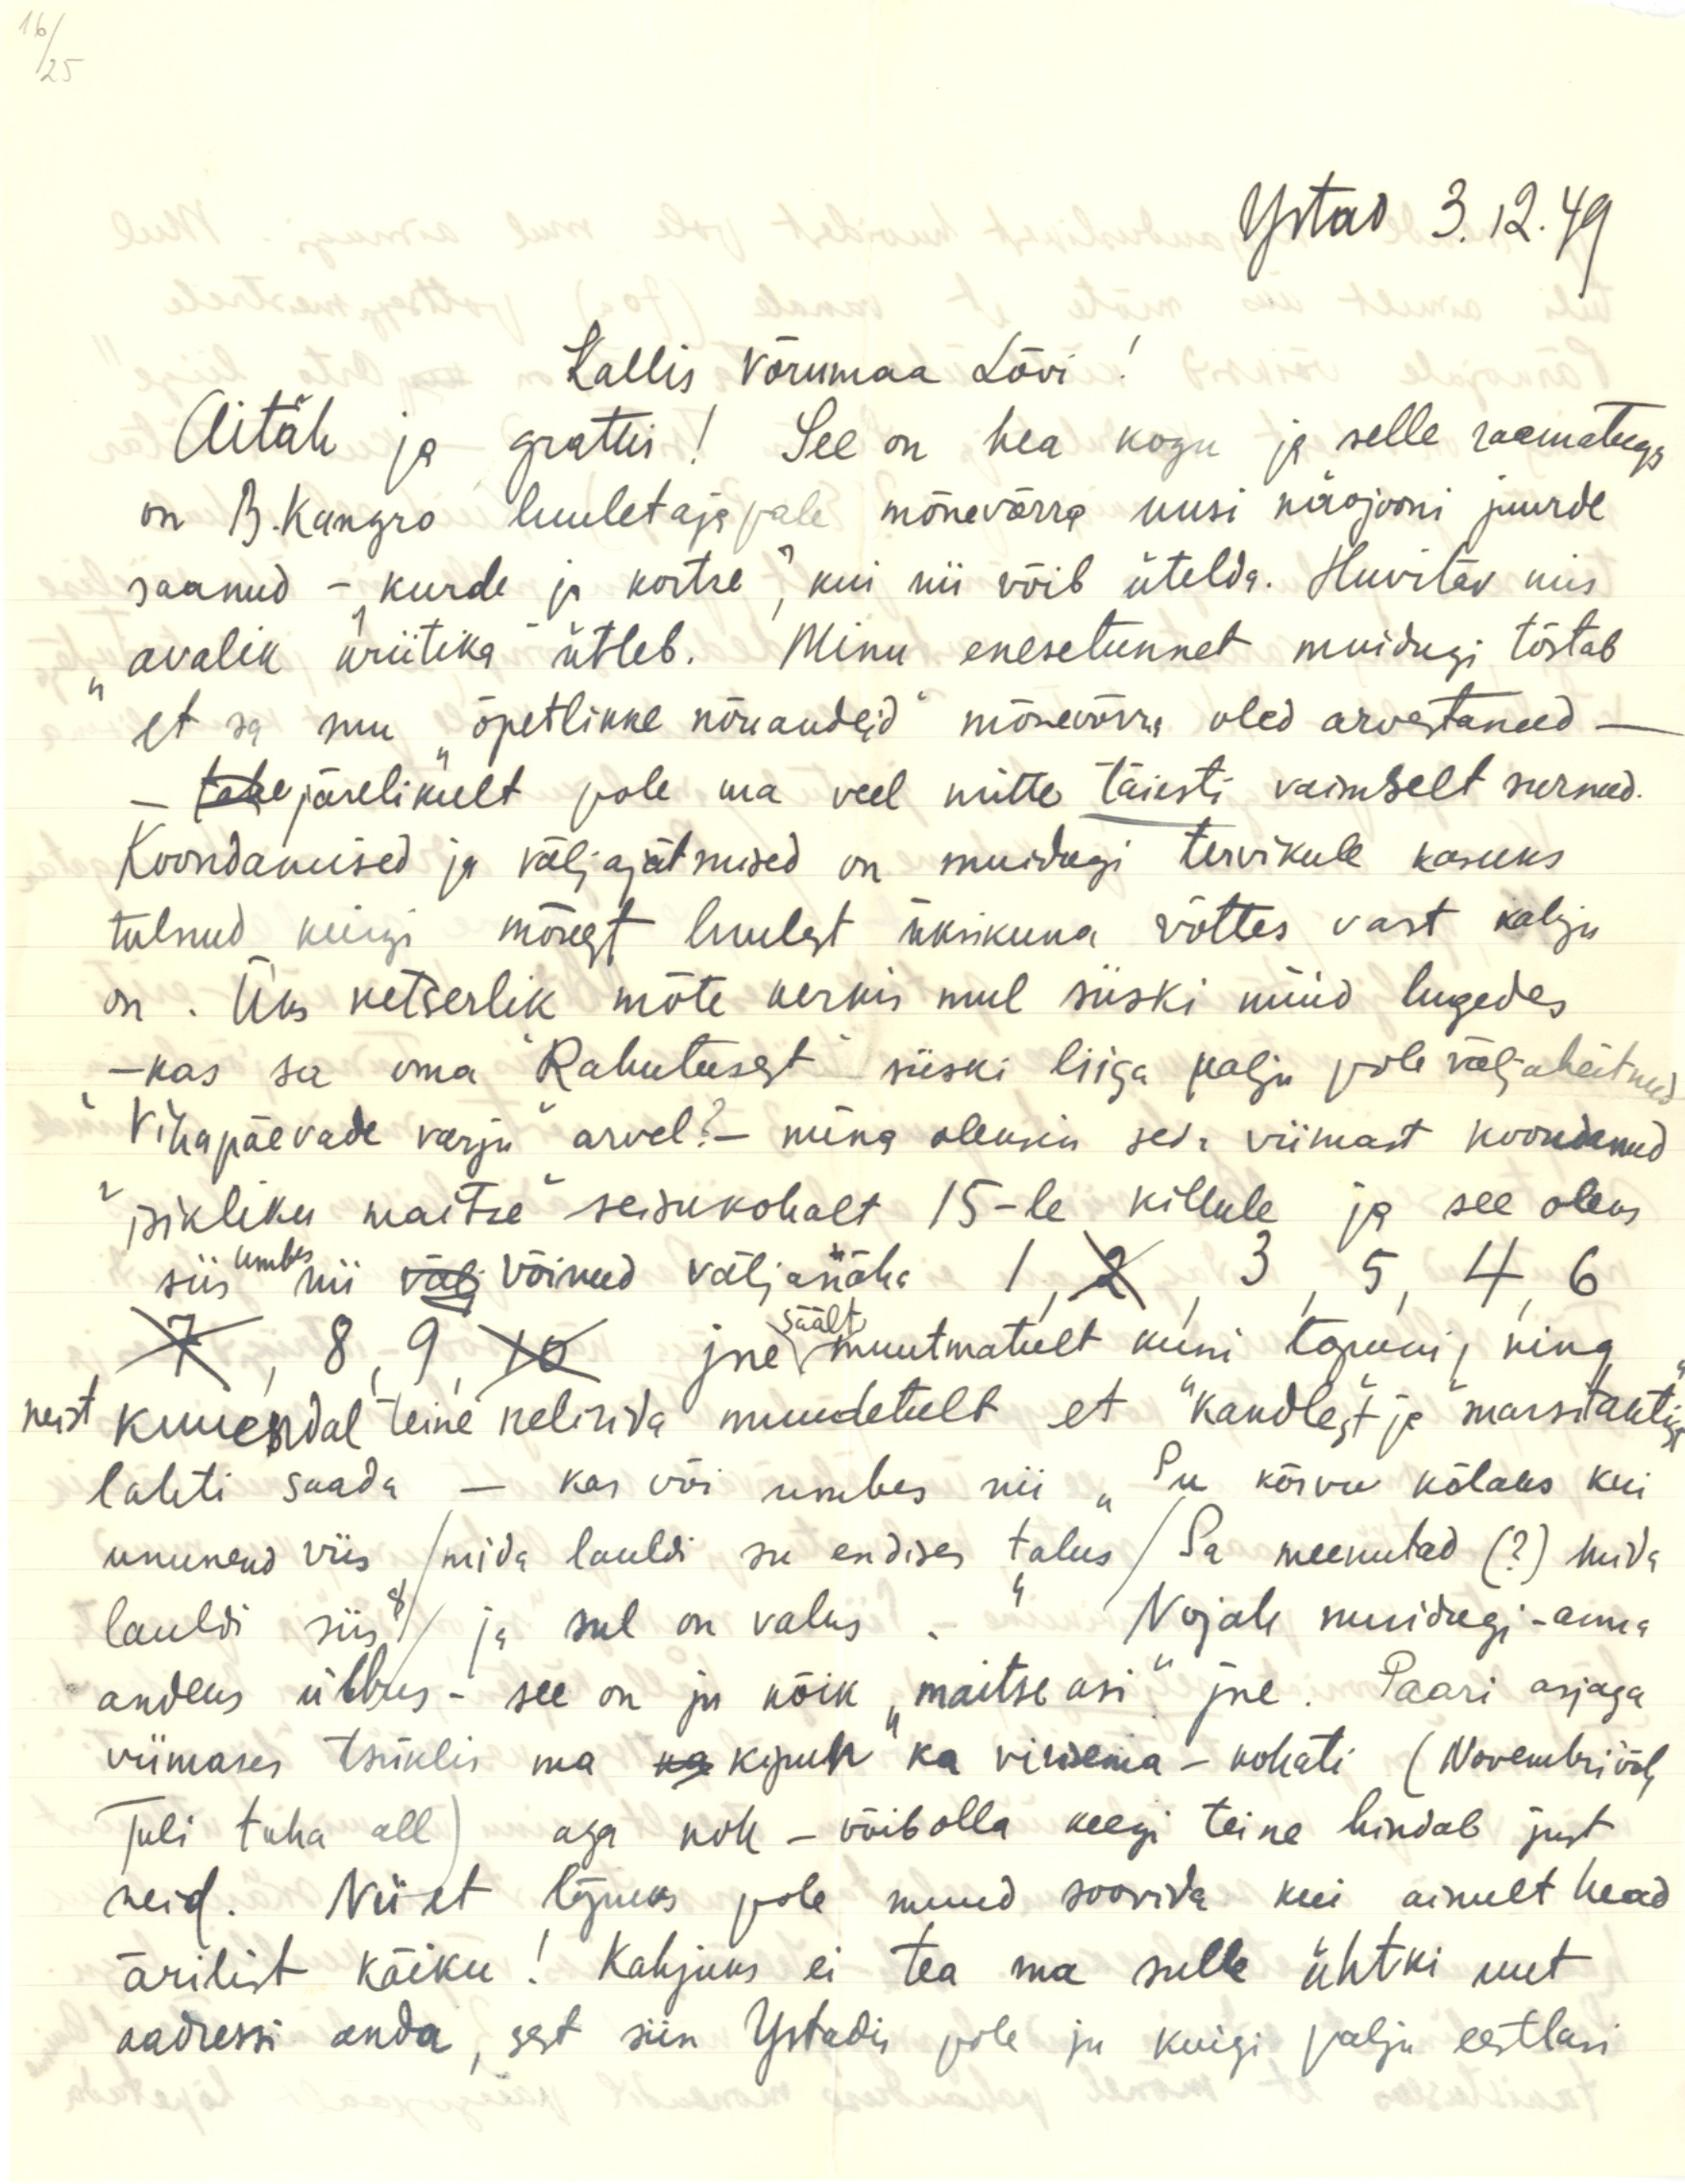 16/25
Ystad 3.12.49
Kallis Võrumaa Lõvi!
Aitäh ja grattis! See on hea kogu ja selle raamatuga
on B. Kangro luuletajapale mõnevõrra uusi näojooni juurde
saanud – „kurde ja kortse", kui nii võib ütelda. Huvitav mis
„avalik kriitika" ütleb. Minu enesetunnet muidugi tõstab
et sa mu „õpetlikke nõuandeid" mõnevõrra oled arvestanud –
– järelikult pole ma veel mitte täiesti vaimselt surnud.
Koondamised ja väljajätmised on muidugi tervikule kasuks
tulnud kuigi mõnest luulest üksikuna võttes vast kahju
on. Üks ketserlik mõte kerkis mul siiski nüüd lugedes
– kas sa oma "Rahutusest" siiski liiga palju pole väljaheitnud
"Vihapäevade varju" arvel? – mina oleksin seda viimast koondanud
"isikliku maitse" seisukohalt 15-le killule ja see oleks
siis umbes nii välj võinud väljanäha 1, 2, 3, 5, 4, 6
7, 8, 9, 10 jne säält muutmatult kuni lõpuni, ning
neist kuuendal teine nelirida muudetult et "kandlest" ja "marsitaktist"
lahti saada – kas või umbes nii „Su kõrvu kõlaks kui
ununend viis / mida lauldi su endises talus / Sa meenutad (?) mida
lauldi siis / ja sul on valus." Nojah muidugi – anna
andeks ülbus – see on ju kõik „maitse asi" jne. Paari asjaga
viimases tsüklis ma ka kipun ka virisema – kohati (Novembriööl,
Tuli tuha all) aga noh – võibolla keegi teine hindab just
neid. Nii et lõpuks pole muud soovida kui ainult head
ärilist käiku! Kahjuks ei tea ma sulle ühtki uut
aadressi anda, sest siin Ystadis pole ju kuigi palju eestlasi